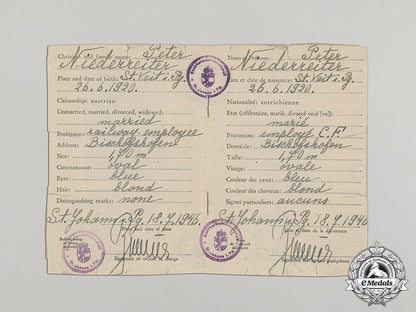 Christian and family name: Peter
Niederreiter
Place and date of birth: St. Veit i. Pg.
26.6.1920.
Citizenship: austrian
Unmarried, married, divorced, widowed:
married
Profession: railway employee
Address: Bischofshofen
Size: 1,70 m
Face: oval
Eyes: blue
Hair: blond
Distinguishing marks: none
St. Johann i. Pg. 18.7.1946
Place and date of issue
Signature of officer in charge
Nom et prénoms: Peter
Niederreiter
Lieu et date de naissance: St. Veit i. Pg.
26.6.1920.
Nationalité: autrichienne
Etat (célibataire, marié, divorcé veuf (ve)):
marié
Profession: employé C.F.
Domicile: Bischofshofen
Taille: 1,70 m
Visage: ovale
Couleur des yeux: bleu
Couleur des cheveux: blond
Signes particuliers: aucuns
St. Johann i. Pg. 18.7.1946
Lieu et date de la délivrance
eMedals